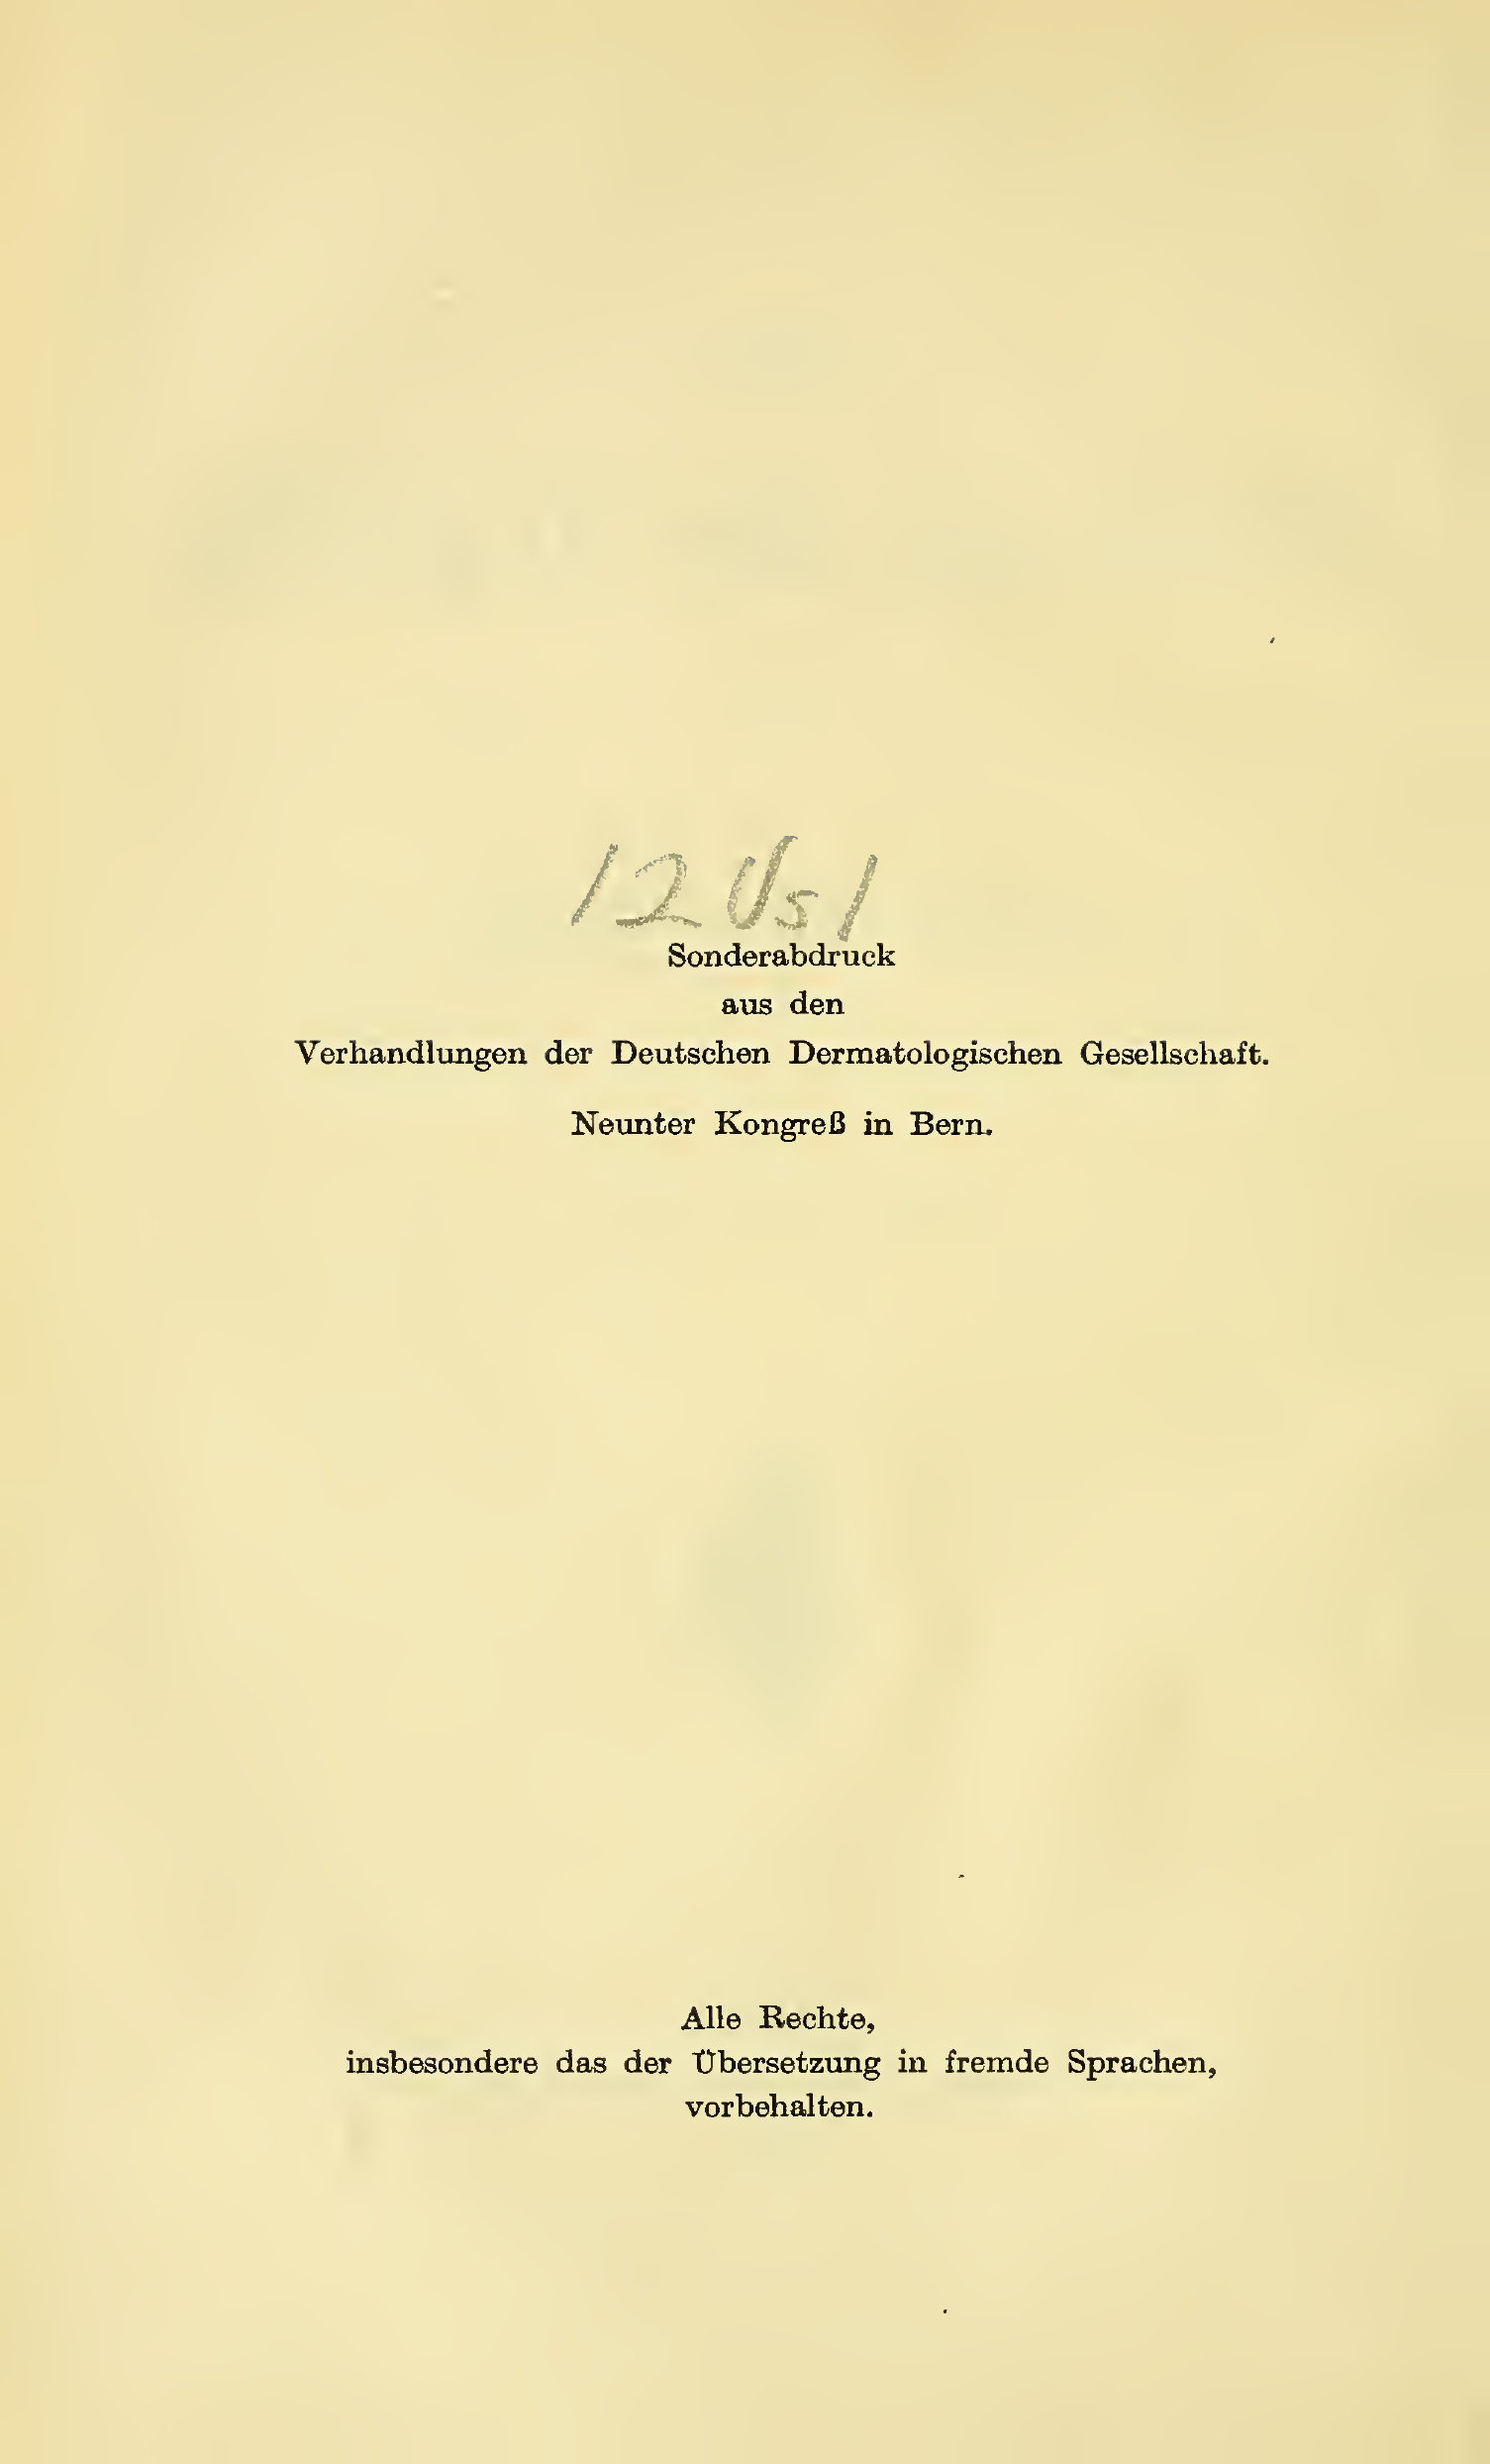 Sonderabdruck
aus den
Verhandlungen der Deutschen Dermatologischen Gesellschaft.
Neunter Kongreß in Bern.
Alle Rechte,
insbesondere das der Übersetzung in fremde Sprachen,
vorbehalten.